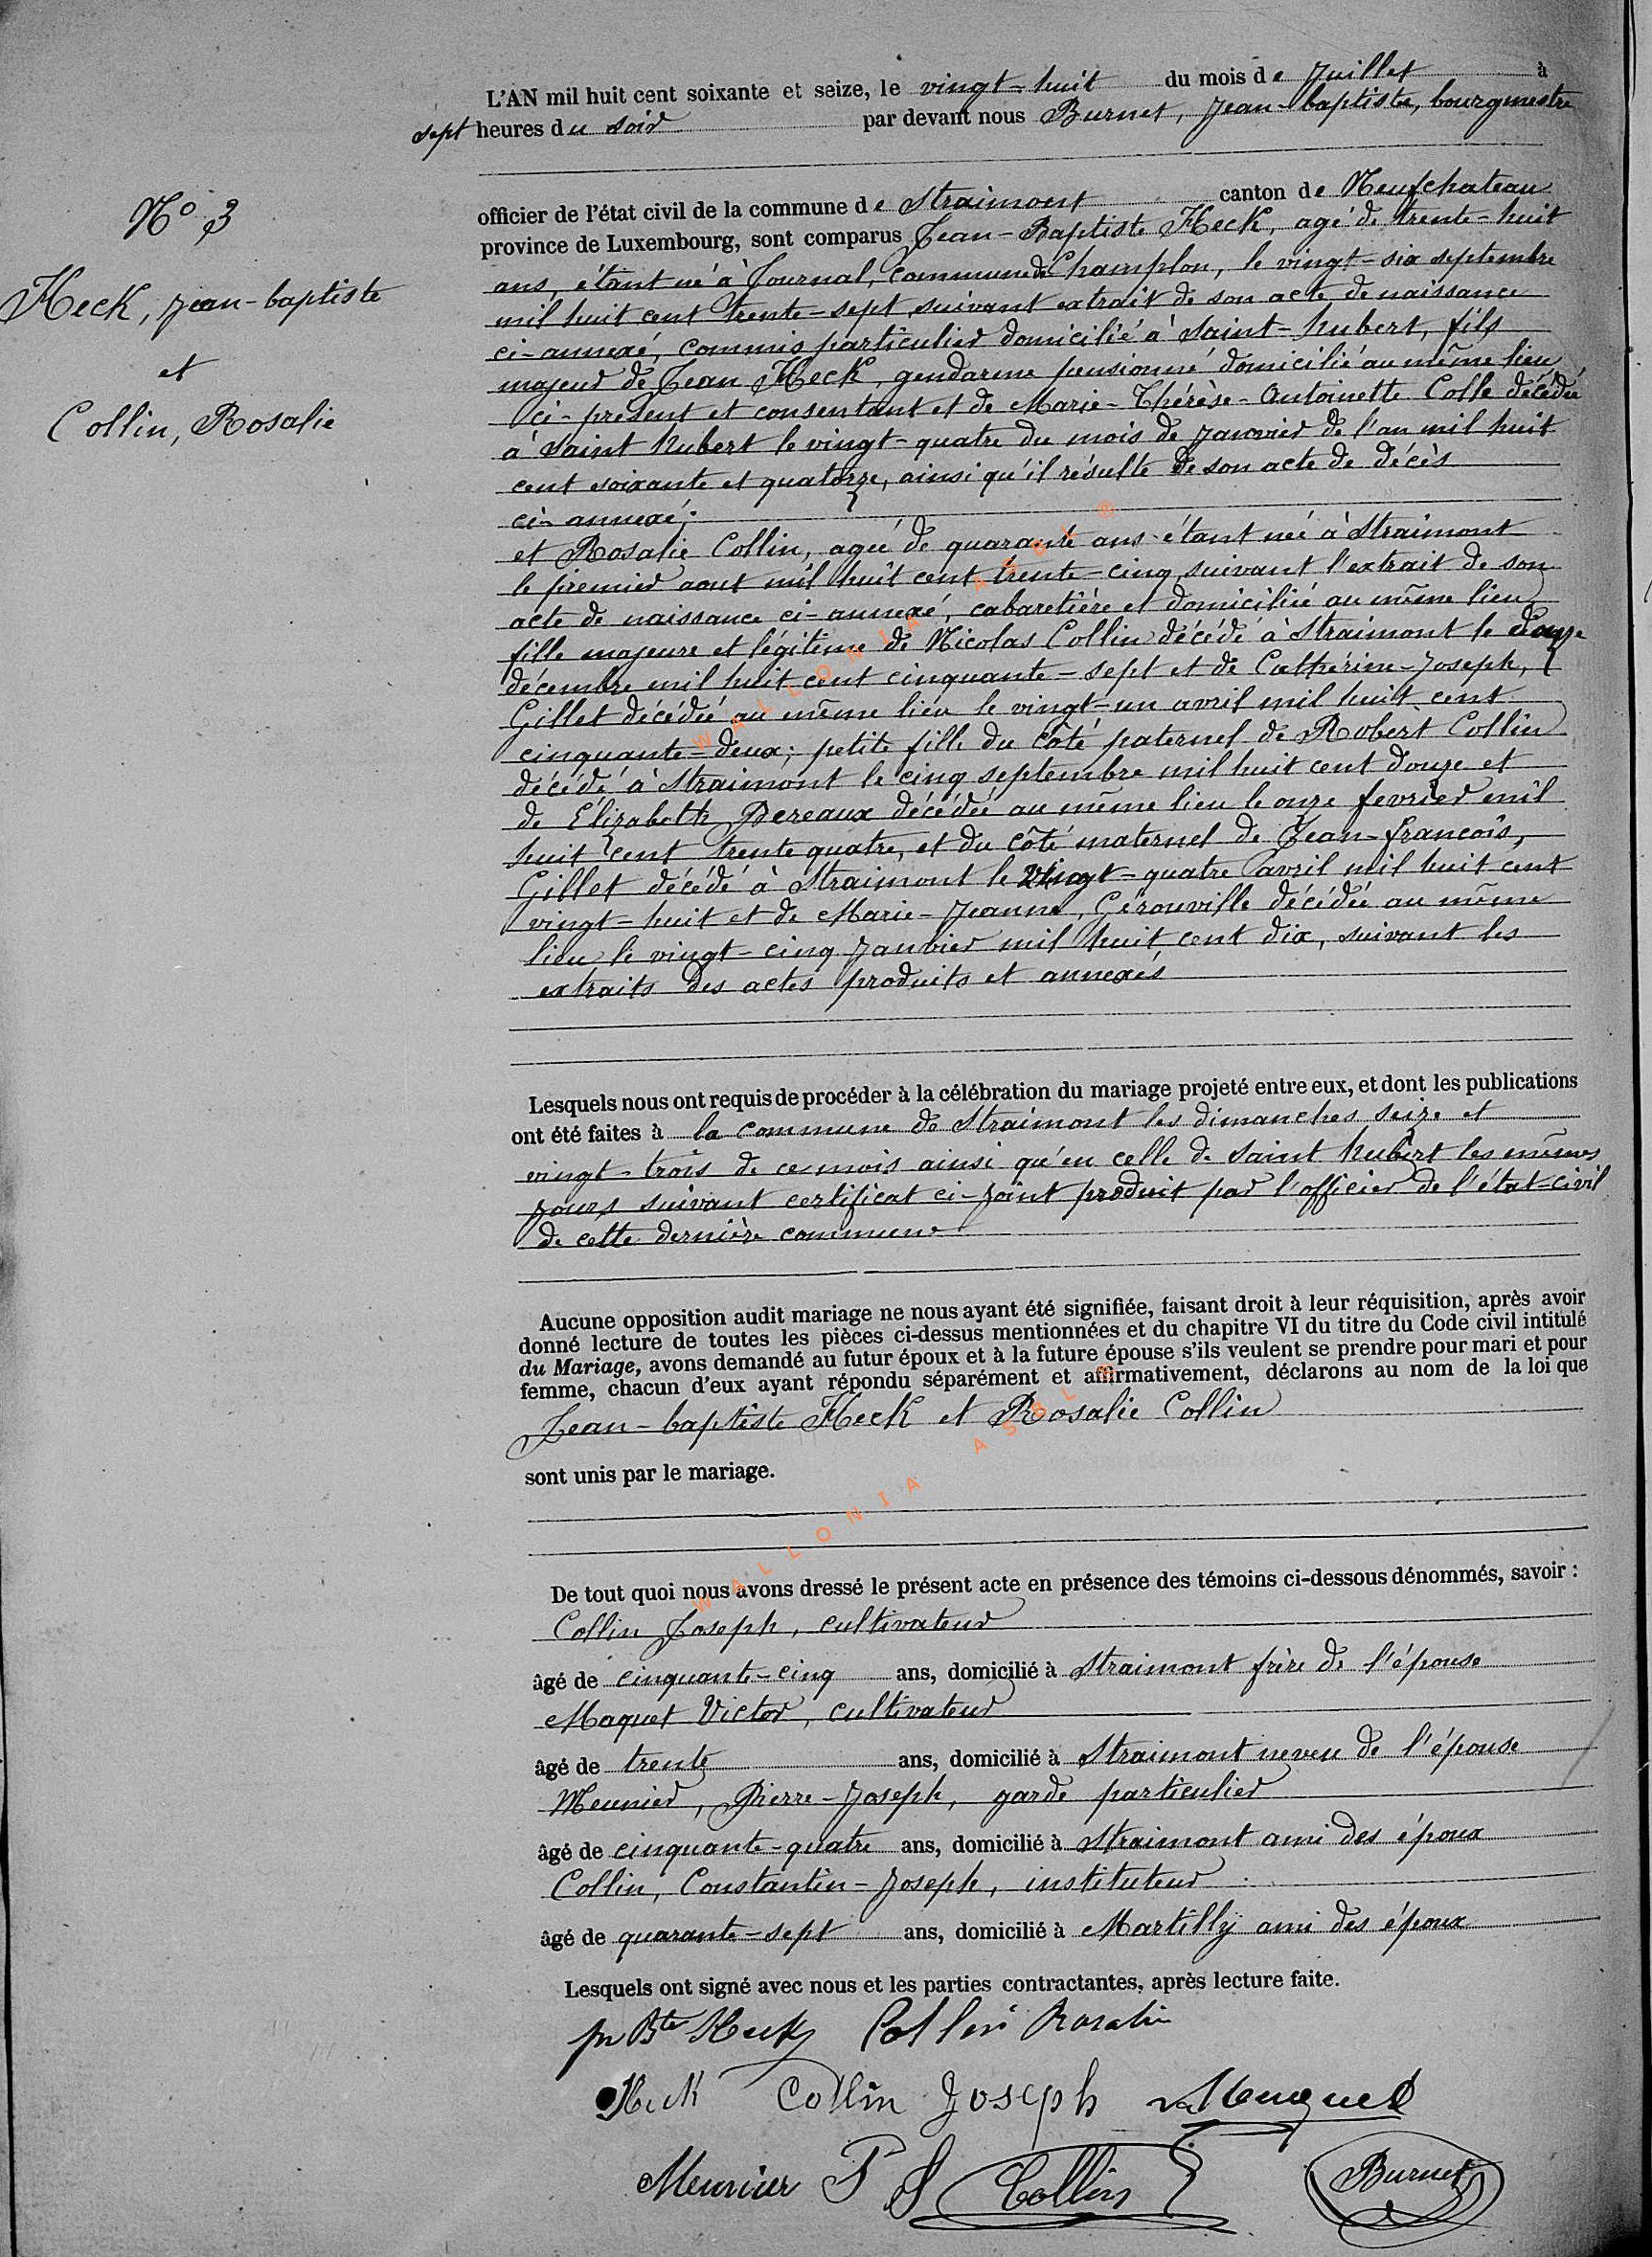 L'AN mil huit cent soixante et seize, le vingt-huit du mois de Juillet à
sept heures du soir par devant nous Burnet, Jean-baptiste, bourgmestre
officier de l'état civil de la commune de Straimont canton de Neufchateau
province de Luxembourg, sont comparus Jean-Baptiste Heck, agé de trente-huit
ans, étant né à Journal, commune de Champlon, le vingt-six septembre
mil huit cent trente-sept suivant extrait de son acte de naissance
ci-annexé, commis particulier domicilié à Saint-hubert, fils
majeur de Jean Heck, gendarme pensionné domicilié au même lieu
ci-présent et consentant et de Marie-Thérèse-Antoinette Colle décédée
à Saint hubert le vingt-quatre du mois de Janvier de l'an mil huit
cent soixante et quatorze, ainsi qu'il résulte de son acte de décès
ci-annexé;
et Rosalie Collin, agée de quarante ans étant née à Straimont
le premier aout mil huit cent trente-cinq suivant l'extrait de son
acte de naissance ci-annexé, cabaretière et domiciliée au même lieu
fille majeure et légitime de Nicolas Collin décédé à Straimont le douze
décembre mil huit cent cinquante-sept et de Cathérine-Joseph,
Gillet décédée au même lieu le vingt-un avril mil huit cent
cinquante-deux; petite fille du côté paternel de Robert Collin
décédé à Straimont le cinq septembre mil huit cent douze et
de Élizabeth Dereaux décédée au même lieu le onze fevrier mil
huit cent trente quatre, et du côté maternel de Jean-françois,
Gillet décédé à Straimont le vingt-quatre avril mil huit cent
vingt-huit et de Marie-Jeanne, Gérouville décédée au même
lieu le vingt-cinq Janvier mil huit cent dix, suivant les
extraits des actes produits et annexés
N° 3
Heck, Jean-baptiste
et
Collin, Rosalie
Lesquels nous ont requis de procéder à la célébration du mariage projeté entre eux, et dont les publications
ont été faites à la commune de Straimont les dimanches seize et
vingt-trois de ce mois ainsi qu'en celle de Saint hubert les mêmes
jours suivant certificat ci-joint produit par l'officier de l'état-civil
de cette dernière commune
Aucune opposition audit mariage ne nous ayant été signifiée, faisant droit à leur réquisition, après avoir
donné lecture de toutes les pièces ci-dessus mentionnées et du chapitre VI du titre du Code civil intitulé
du Mariage, avons demandé au futur époux et à la future épouse s'ils veulent se prendre pour mari et pour
femme, chacun d'eux ayant répondu séparément et affirmativement, déclarons au nom de la loi que
Jean-baptiste Heck et Rosalie Collin
sont unis par le mariage.
De tout quoi nous avons dressé le présent acte en présence des témoins ci-dessous dénommés, savoir :
Collin Joseph, cultivateur
âgé de cinquante-cinq ans, domicilié à Straimont frère de l'épouse
Maquet Victor, cultivateur
âgé de trente ans, domicilié à Straimont neveu de l'épouse
Meunier, Pierre-Joseph, garde particulier
âgé de cinquante-quatre ans, domicilié à Straimont ami des époux
Collin, Constantin-Joseph, instituteur
âgé de quarante-sept ans, domicilié à Martilly ami des époux
Lesquels ont signé avec nous et les parties contractantes, après lecture faite.
Jn Bte Heck Collin Rosalie
Heck Collin Joseph Maquet
Meunier P J Collin Burnet
WALLONIA ASBL ®
WALLONIA ASBL ®